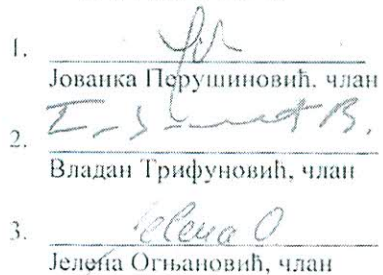 1.
Јованка Перушиновић, члан
2.
Владан Трифуновић, члан
3. Jelena O
Јелена Огњановић, члан